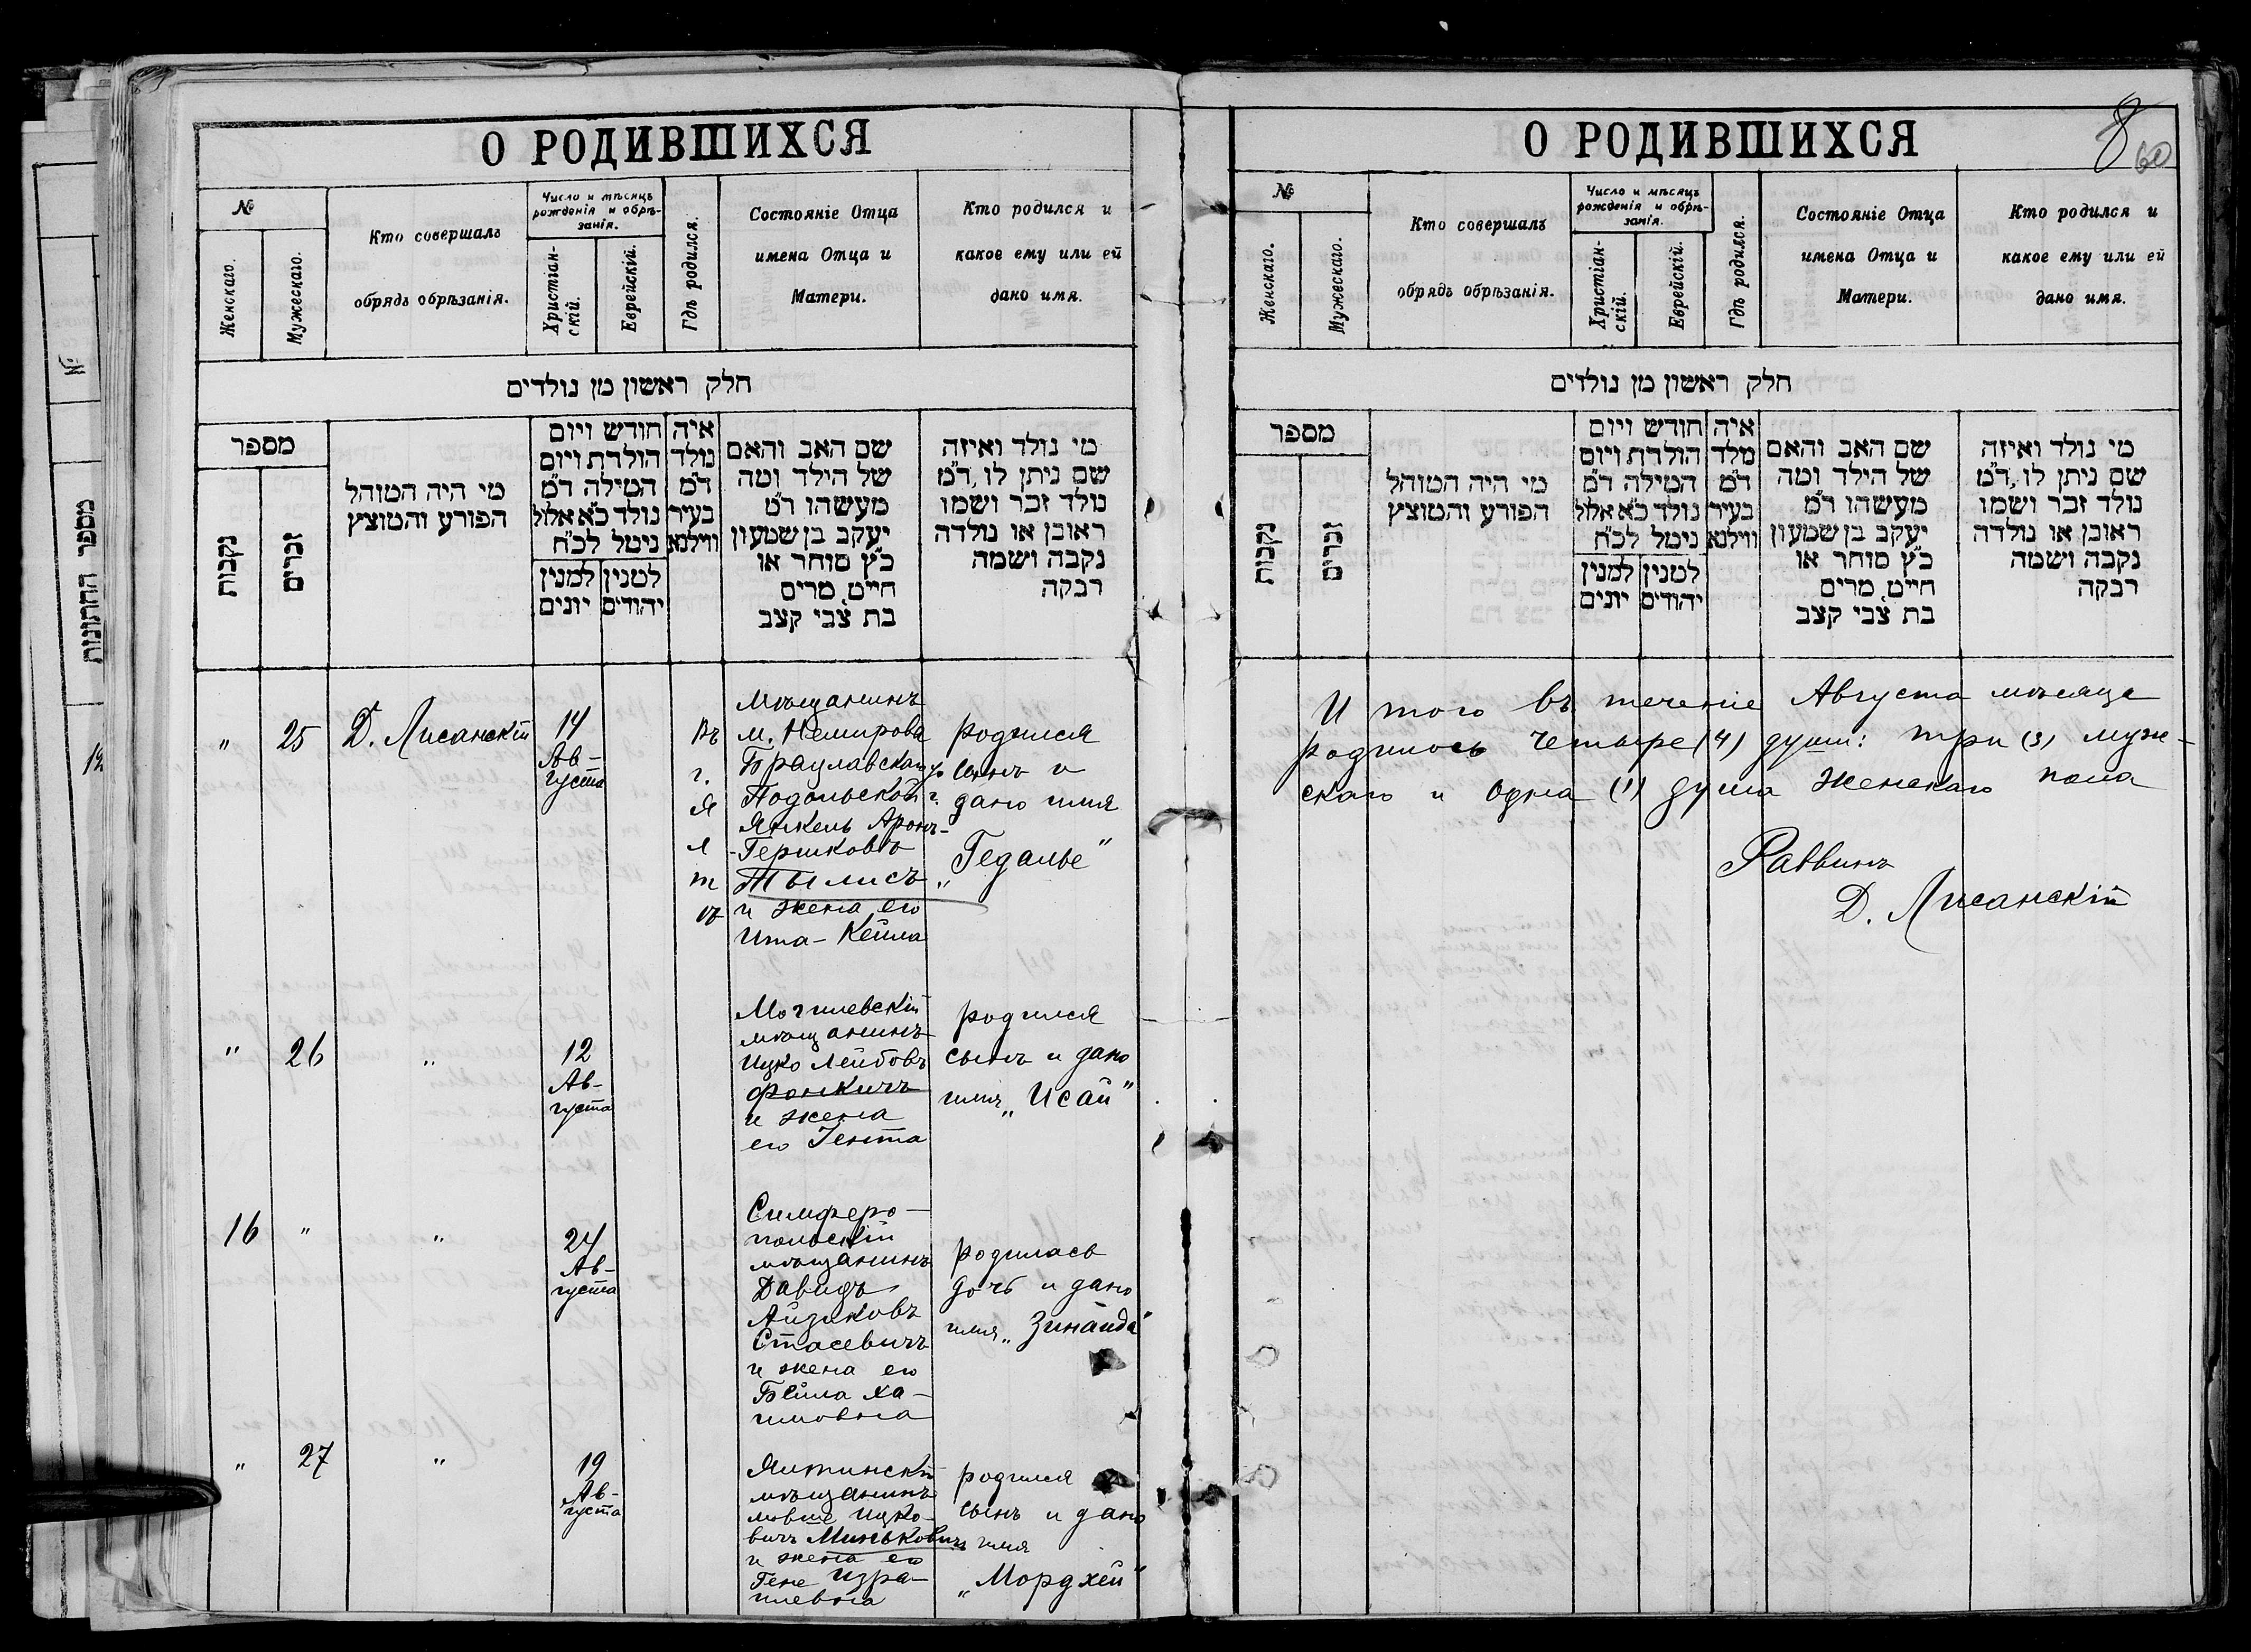 О РОДИВШИХСЯ
№
Женскаго.
Мужескаго.
Кто совершалъ
обрядъ обрѣзанія.
Число и мѣсяцъ
рожденія и обрѣ-
занія.
Христіан-
скій.
Еврейскій.
Гдѣ родился.
Состояніе Отца
имена Отца и
Матери.
Кто родился и
какое ему или ей
дано имя.
חלק ראשון מן נולדים
מספר
נקבות
זכרים
מי היה המוהל
הפורע והמוצץ
חודש ויום
הולדת ויום
המילה ד״מ
נולד כ״א אלול
נימל לכ״ח
למנין למנין
יהודים יונים
איה
נולד
ד״מ
בעיר
ווילנא
שם האב והאם
של הילד ומה
מעשהו ד״מ
יעקב בן שמעון
כ״ץ סוחר או
חייט, מרים
בת צבי קצב
מי נולד ואיזה
שם ניתן לו, ד״מ
נולד זכר ושמו
ראובן או נולדה
נקבה ושמה
רבקה
" 25 Д. Лисанскій
14
Ав-
густа
Въ
г.
Я
л
т
ѣ
Мѣщанинъ
м. Немирова
Брацлавскаго у
Подольской г.
Янкель Аронъ-
Гершковъ
Тылисъ
и жена его
Ита-Кейла
родился
сынъ и
дано имя
„Гедалье"
" 26 "
12
Ав-
густа
Могилевскій
мѣщанинъ
Ицко Лейбовъ
Фонкичъ
и жена
его Гента
родился
сынъ и дано
имя „Исай"
16 " "
24
Ав-
густа
Симферо-
польскій
мѣщанинъ
Давидъ
Айзиковъ
Стасевичъ
и жена его
Бейла Ха-
имовна
родилась
дочь и дано
имя „Зинаида"
" 27 "
19
Ав-
густа
Ялтинскій
мѣщанинъ
Мовше Ицко-
вичъ Миньковичъ
и жена его
Гене Изра-
илевна
родился
сынъ и дано
имя
„Мордхей"
О РОДИВШИХСЯ
8
60
№
Женскаго.
Мужескаго.
Кто совершалъ
обрядъ обрѣзанія.
Число и мѣсяцъ
рожденія и обрѣ-
занія.
Христіан-
скій.
Еврейскій.
Гдѣ родился.
Состояніе Отца
имена Отца и
Матери.
Кто родился и
какое ему или ей
дано имя.
חלק ראשון מן נולדים
מספר
נקבות
זכרים
מי היה המוהל
הפורע והמוצץ
חודש ויום
הולדת ויום
המילה ד״מ
נולד כ״א אלול
נימל לכ״ח
למנין למנין
יהודים יונים
איה
מלד
ד״מ
בעיר
ווילנא
שם האב והאם
של הילד ומה
מעשהו ד״מ
יעקב בן שמעון
כ״ץ סוחר או
חייט, מרים
בת צבי קצב
מי נולד ואיזה
שם ניתן לו, ד״מ
נולד זכר ושמו
ראובן או נולדה
נקבה ושמה
רבקה
И того въ теченіе Августа мѣсяца
родилось четыре (4) души: три (3) муж-
скаго и одна (1) душа женскаго пола
Раввинъ
Д. Лисанскій
№
מספר החתונות